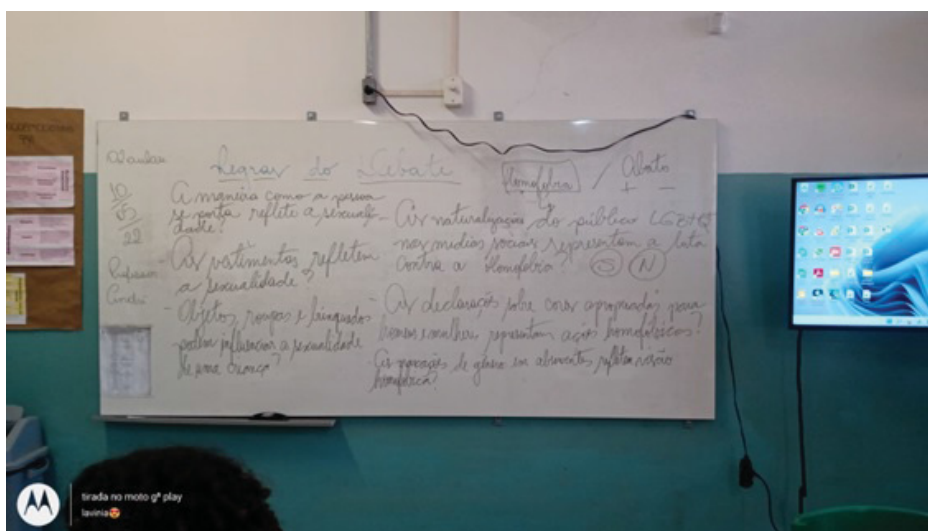 Regras do Debate
Homofobia / Aborto
+ -
22
Professor
A maneira como a pessoa
se porta reflete a sexuali-
dade?
- As vestimentas refletem
a sexualidade?
- Objetos, roupas e brinquedos
podem influenciar a sexualidade
de uma criança?
- As naturalizações do público LGBT+Q
nas mídias sociais representam a luta
contra a Homofobia? S N
- As declarações sobre cores apropriadas para
homens e mulheres representam ações homofóbicas?
- As marcações de gênero em refletem visão
homofóbica?
tirada no moto g⁸ play
lavinia😍